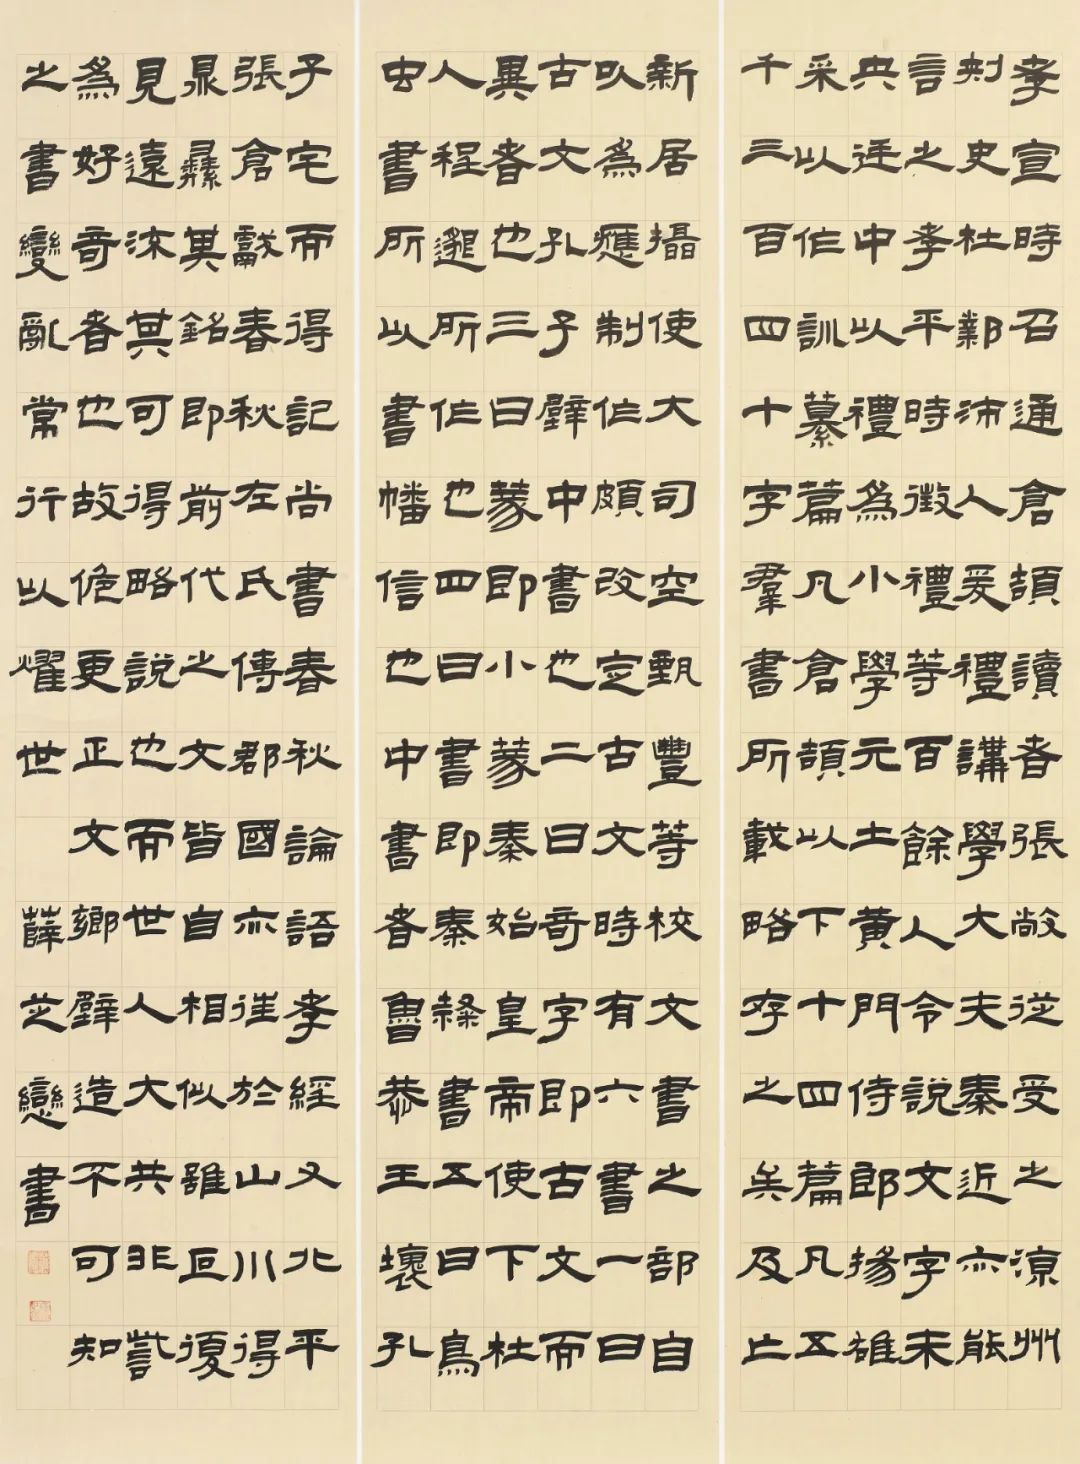 孝宣時召通倉頡讀者張敞從受之涼州
刺史杜鄴沛人爰禮講學大夫秦近亦能
言之孝平時徵禮等百餘人令說文字未
央廷中以禮為小學元士黃門侍郎揚雄
采以作訓纂篇凡倉頡以下十四篇凡五
千三百四十字羣書所載略存之矣及亡
新居攝使大司空甄豐等校文書之部自
以為應制作頗改定古文時有六書一曰
古文孔子壁中書也二曰奇字即古文而
異者也三曰篆即小篆秦始皇帝使下杜
人程邈所作也四曰書即秦隸書五曰鳥
虫書所以書幡信也中書者魯恭王壞孔
子宅而得記尚書春秋論語孝經又北平
張倉獻春秋左氏傳郡國亦往於山川得
鼎彝其銘即前代之文皆自相似雖叵復
見遠流其可得略說也而世人大共非訾
為好奇者也故詭更正文鄉壁造不可知
之書變亂常行以燿世 薛芷戀書